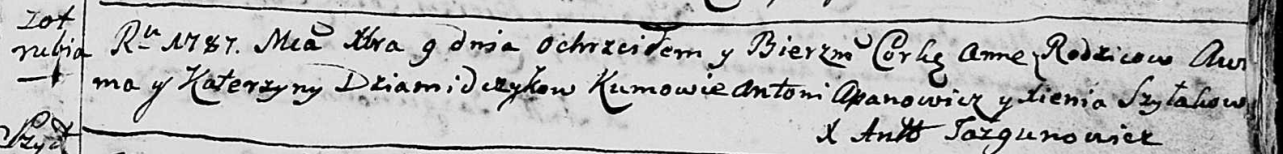 Zot
rubia
Rᵘ 1787. Mca Xbra 9 dnia ochrzciłem y Bierzm Corkę Anne Rodzicow Aw
ma y Katerzyny Dziamidczykow Kumowie Antoni Apanowicz y Xienia Szyłakow
X Antt Jazgunowicz
Szyd